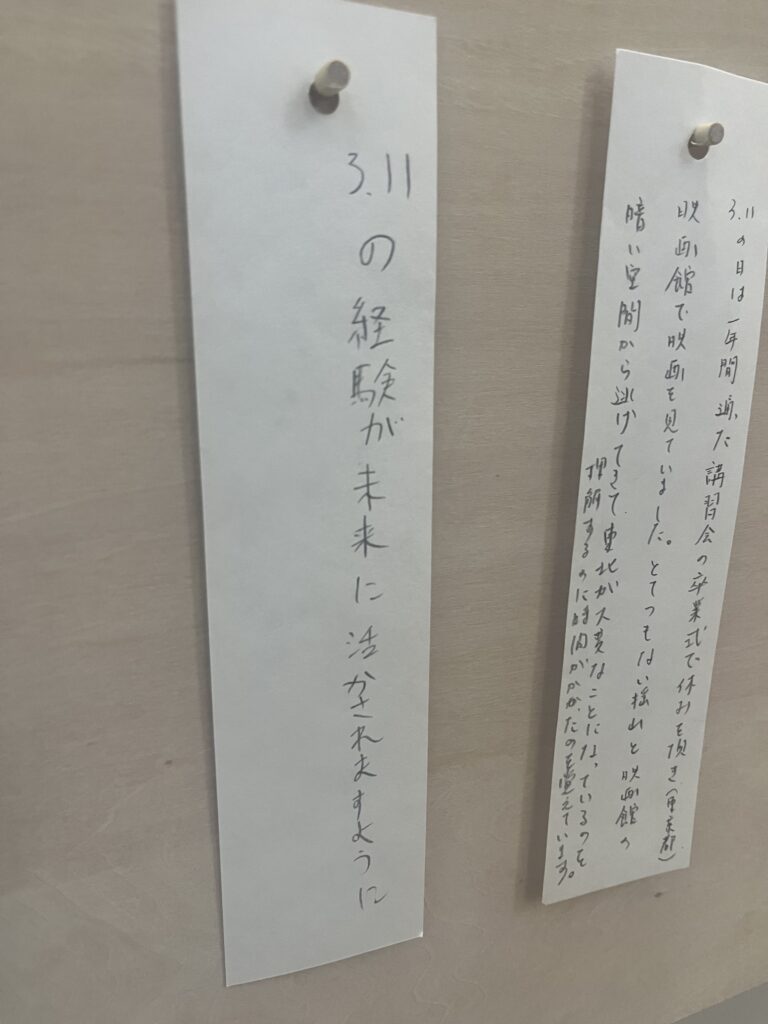 3.11の経験が未来に活かされますように
3.11の日は一年間通った講習会の卒業式で休みを頂き(東京都)
映画館で映画を見ていました。とてつもない揺れと映画館の
暗い空間から逃げてきて東北が大変なことになっているのを
理解するのに時間がかかったのを覚えています。